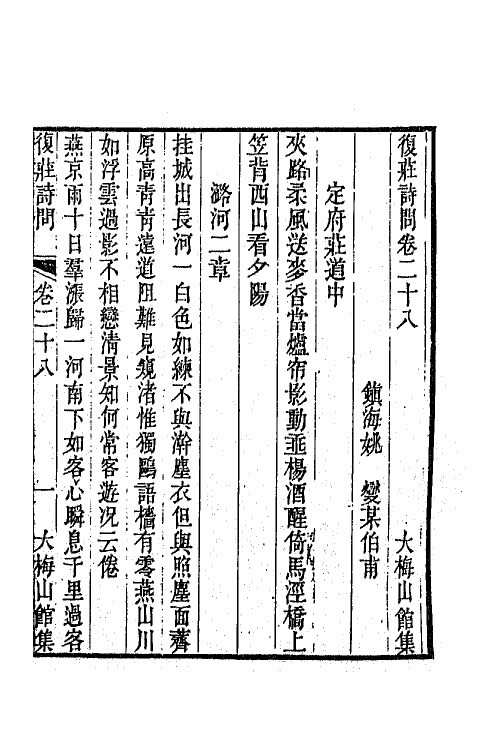 復莊詩問卷二十八　大梅山館集
鎮海姚　燮某伯甫
定府莊道中
夾路柔風送麥香當爐帘影動垂楊酒醒倚馬涇橋上
笠背西山看夕陽
潞河二章
挂城出長河一白色如練不與澣塵衣但與照塵面薺
原高青青遠道阻難見窺渚惟獨鷗語檣有零燕山川
如浮雲過影不相戀淸景知何常客遊况云倦
燕京雨十日羣漲歸一河南下如客心瞬息千里過客
復莊詩問　卷二十八　一　大梅山館集